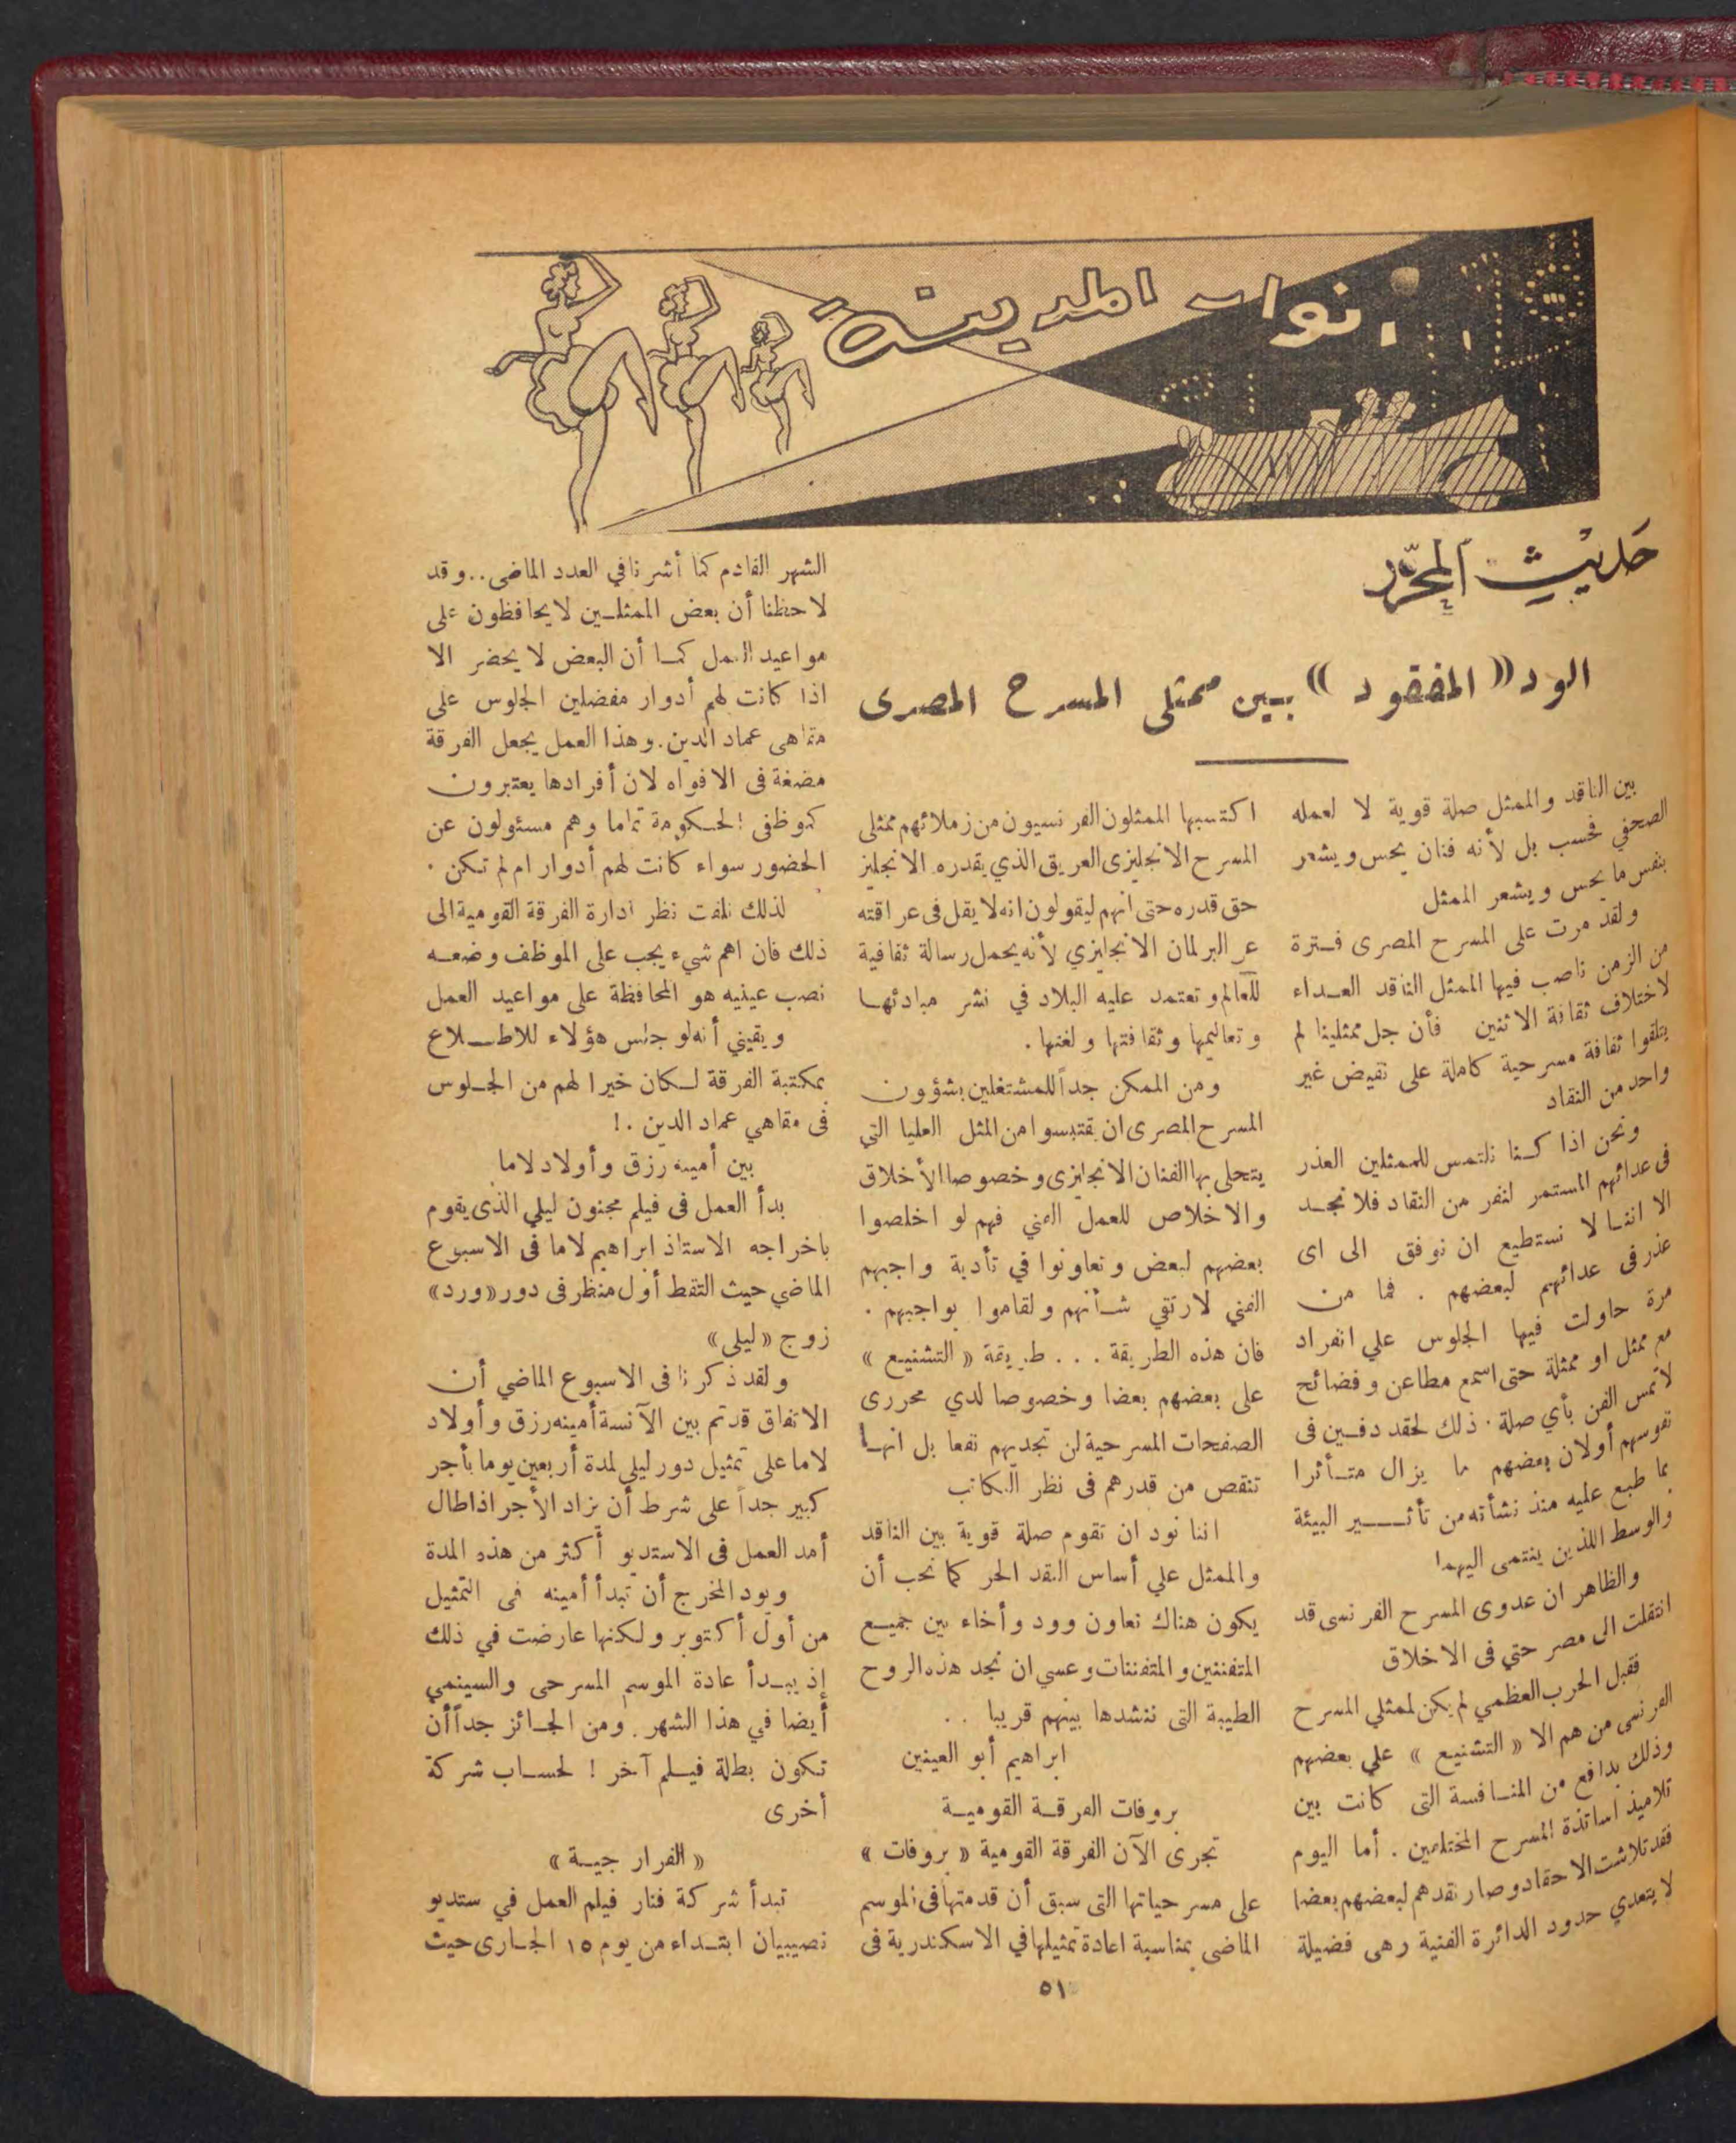 أنوار المدينة
حديث المحرر
الود « المفقود » بين ممثلى المسرح المصرى
بين الناقد والممثل صلة قوية لا لعمله
الصحفي فحسب بل لأنه فنان يحس ويشعر
بنفس ما يحس ويشعر الممثل
ولقد مرت على المسرح المصرى فترة
من الزمن ناصب فيها الممثل الناقد العداء
لاختلاف ثقافة الاثنين فأن جل ممثلينا لم
يتلقوا ثقافة مسرحية كاملة على نقيض غير
واحد من النقاد
ونحن اذا كنا نلتمس للممثلين العذر
فى عدائهم المستمر لنفر من النقاد فلا نجد
الا اننا لا نستطيع ان نوفق الى اى
عذر فى عدائهم لبعضهم . فما من
مرة حاولت فيها الجلوس علي انفراد
مع ممثل او ممثلة حتى اسمع مطاعن وفضائح
لا تمس الفن بأي صلة . ذلك لحقد دفين فى
نفوسهم أولان بعضهم ما يزال متأثرا
بما طبع عليه منذ نشأته من تأثير البيئة
والوسط اللذين ينتمى اليهما
والظاهر ان عدوى المسرح الفرنسى قد
انتقلت الى مصر حتي فى الاخلاق
فقبل الحرب العظمي لم يكن لممثلي المسرح
الفرنسى من هم الا « التشنيع » علي بعضهم
وذلك بدافع من المنافسة التى كانت بين
تلاميذ اساتذة المسرح المختلفين . أما اليوم
فقد تلاشت الاحقاد وصار نقدهم لبعضهم بعضا
لا يتعدي حدود الدائرة الفنية وهى فضيلة
اكتسبها الممثلون الفرنسيون من زملائهم ممثلى
المسرح الانجليزى العريق الذي يقدره الانجليز
حق قدره حتى انهم ليقولون انه لا يقل فى عراقته
عن البرلمان الانجليزي لأنه يحمل رسالة ثقافية
للعالم وتعتمد عليه البلاد في نشر مبادئها
وتعاليمها وثقافتها ولغتها .
ومن الممكن جداً للمشتغلين بشؤون
المسرح المصرى ان يقتبسوا من المثل العليا التي
يتحلى بها الفنان الانجليزى وخصوصا الأخلاق
والاخلاص للعمل الفني فهم لو اخلصوا
بعضهم لبعض وتعاونوا في تأدية واجبهم
الفني لارتقي شأنهم ولقاموا بواجبهم .
فان هذه الطريقة . . . طريقة « التشنيع »
على بعضهم بعضا وخصوصا لدي محررى
الصفحات المسرحية لن تجديهم نفعا بل انها
تنقص من قدرهم فى نظر الكاتب
اننا نود ان تقوم صلة قوية بين الناقد
والممثل علي أساس النقد الحر كما نحب أن
يكون هناك تعاون وود وأخاء بين جميع
المتفننين والمتفننات وعسي ان نجد هذه الروح
الطيبة التى ننشدها بينهم قريبا . .
ابراهيم أبو العينين
بروفات الفرقة القومية
تجرى الآن الفرقة القومية « بروفات »
على مسرحياتها التى سبق أن قدمتها فى الموسم
الماضى بمناسبة اعادة تمثيلها في الاسكندرية فى
الشهر القادم كما أشرنا في العدد الماضى .. وقد
لاحظنا أن بعض الممثلين لا يحافظون على
مواعيد العمل كما أن البعض لا يحضر الا
اذا كانت لهم أدوار مفضلين الجلوس على
مقاهى عماد الدين . وهذا العمل يجعل الفرقة
مضغة فى الافواه لان أفرادها يعتبرون
كموظفى الحكومة تماما وهم مسئولون عن
الحضور سواء كانت لهم أدوار ام لم تكن .
لذلك نلفت نظر ادارة الفرقة القومية الى
ذلك فان اهم شيء يجب على الموظف وضعه
نصب عينيه هو المحافظة على مواعيد العمل
ويقيني أنه لو جلس هؤلاء للاطلاع
بمكتبة الفرقة لكان خيرا لهم من الجلوس
فى مقاهي عماد الدين . !
بين أمينه رزق وأولاد لاما
بدأ العمل فى فيلم مجنون ليلي الذى يقوم
باخراجه الاستاذ ابراهيم لاما فى الاسبوع
الماضي حيث التقط أول منظر فى دور « ورد »
زوج « ليلى »
ولقد ذكرنا فى الاسبوع الماضي أن
الاتفاق قد تم بين الآنسة أمينه رزق وأولاد
لاما على تمثيل دور ليلى لمدة أربعين يوما بأجر
كبير جداً على شرط أن يزاد الأجر اذا طال
أمد العمل فى الاستديو أكثر من هذه المدة
ويود المخرج أن تبدأ أمينه فى التمثيل
من أول أكتوبر ولكنها عارضت في ذلك
إذ يبدأ عادة الموسم المسرحى والسينمي
أيضا في هذا الشهر . ومن الجائز جداً أن
تكون بطلة فيلم آخر ! لحساب شركة
أخرى
« الفرار جية »
تبدأ شركة فنار فيلم العمل في ستديو
نصيبيان ابتداء من يوم ١٥ الجارى حيث
٥١